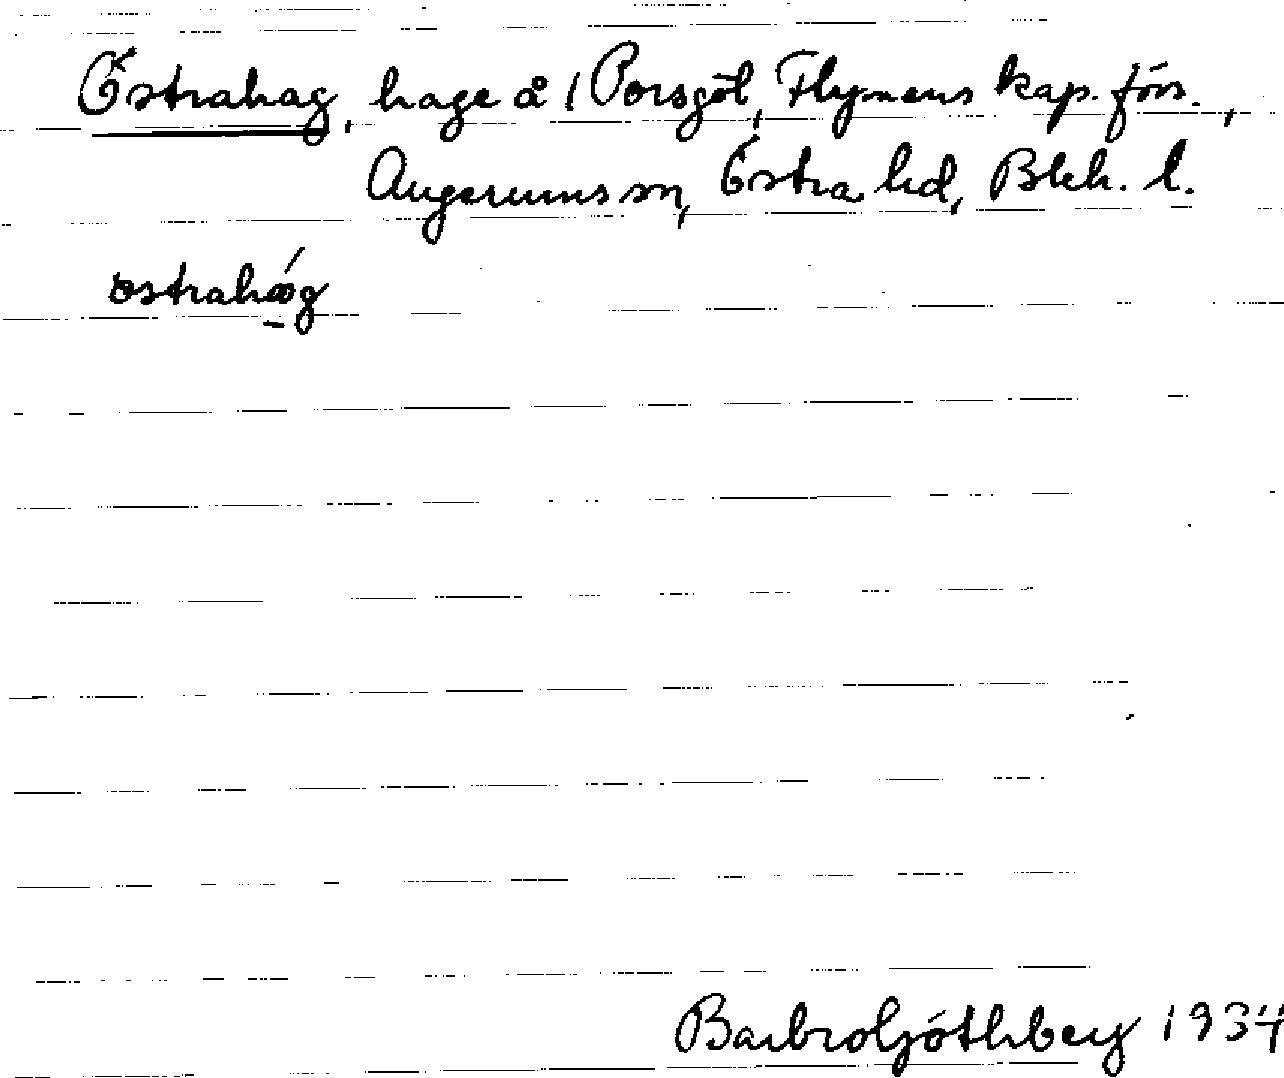 Östrahag, hage å 1 Porsgöl, Flymens kap. förs.,
Augerums sn, Östra hd, Blek. l.
ostrahág
Barbro Götlberg 1934